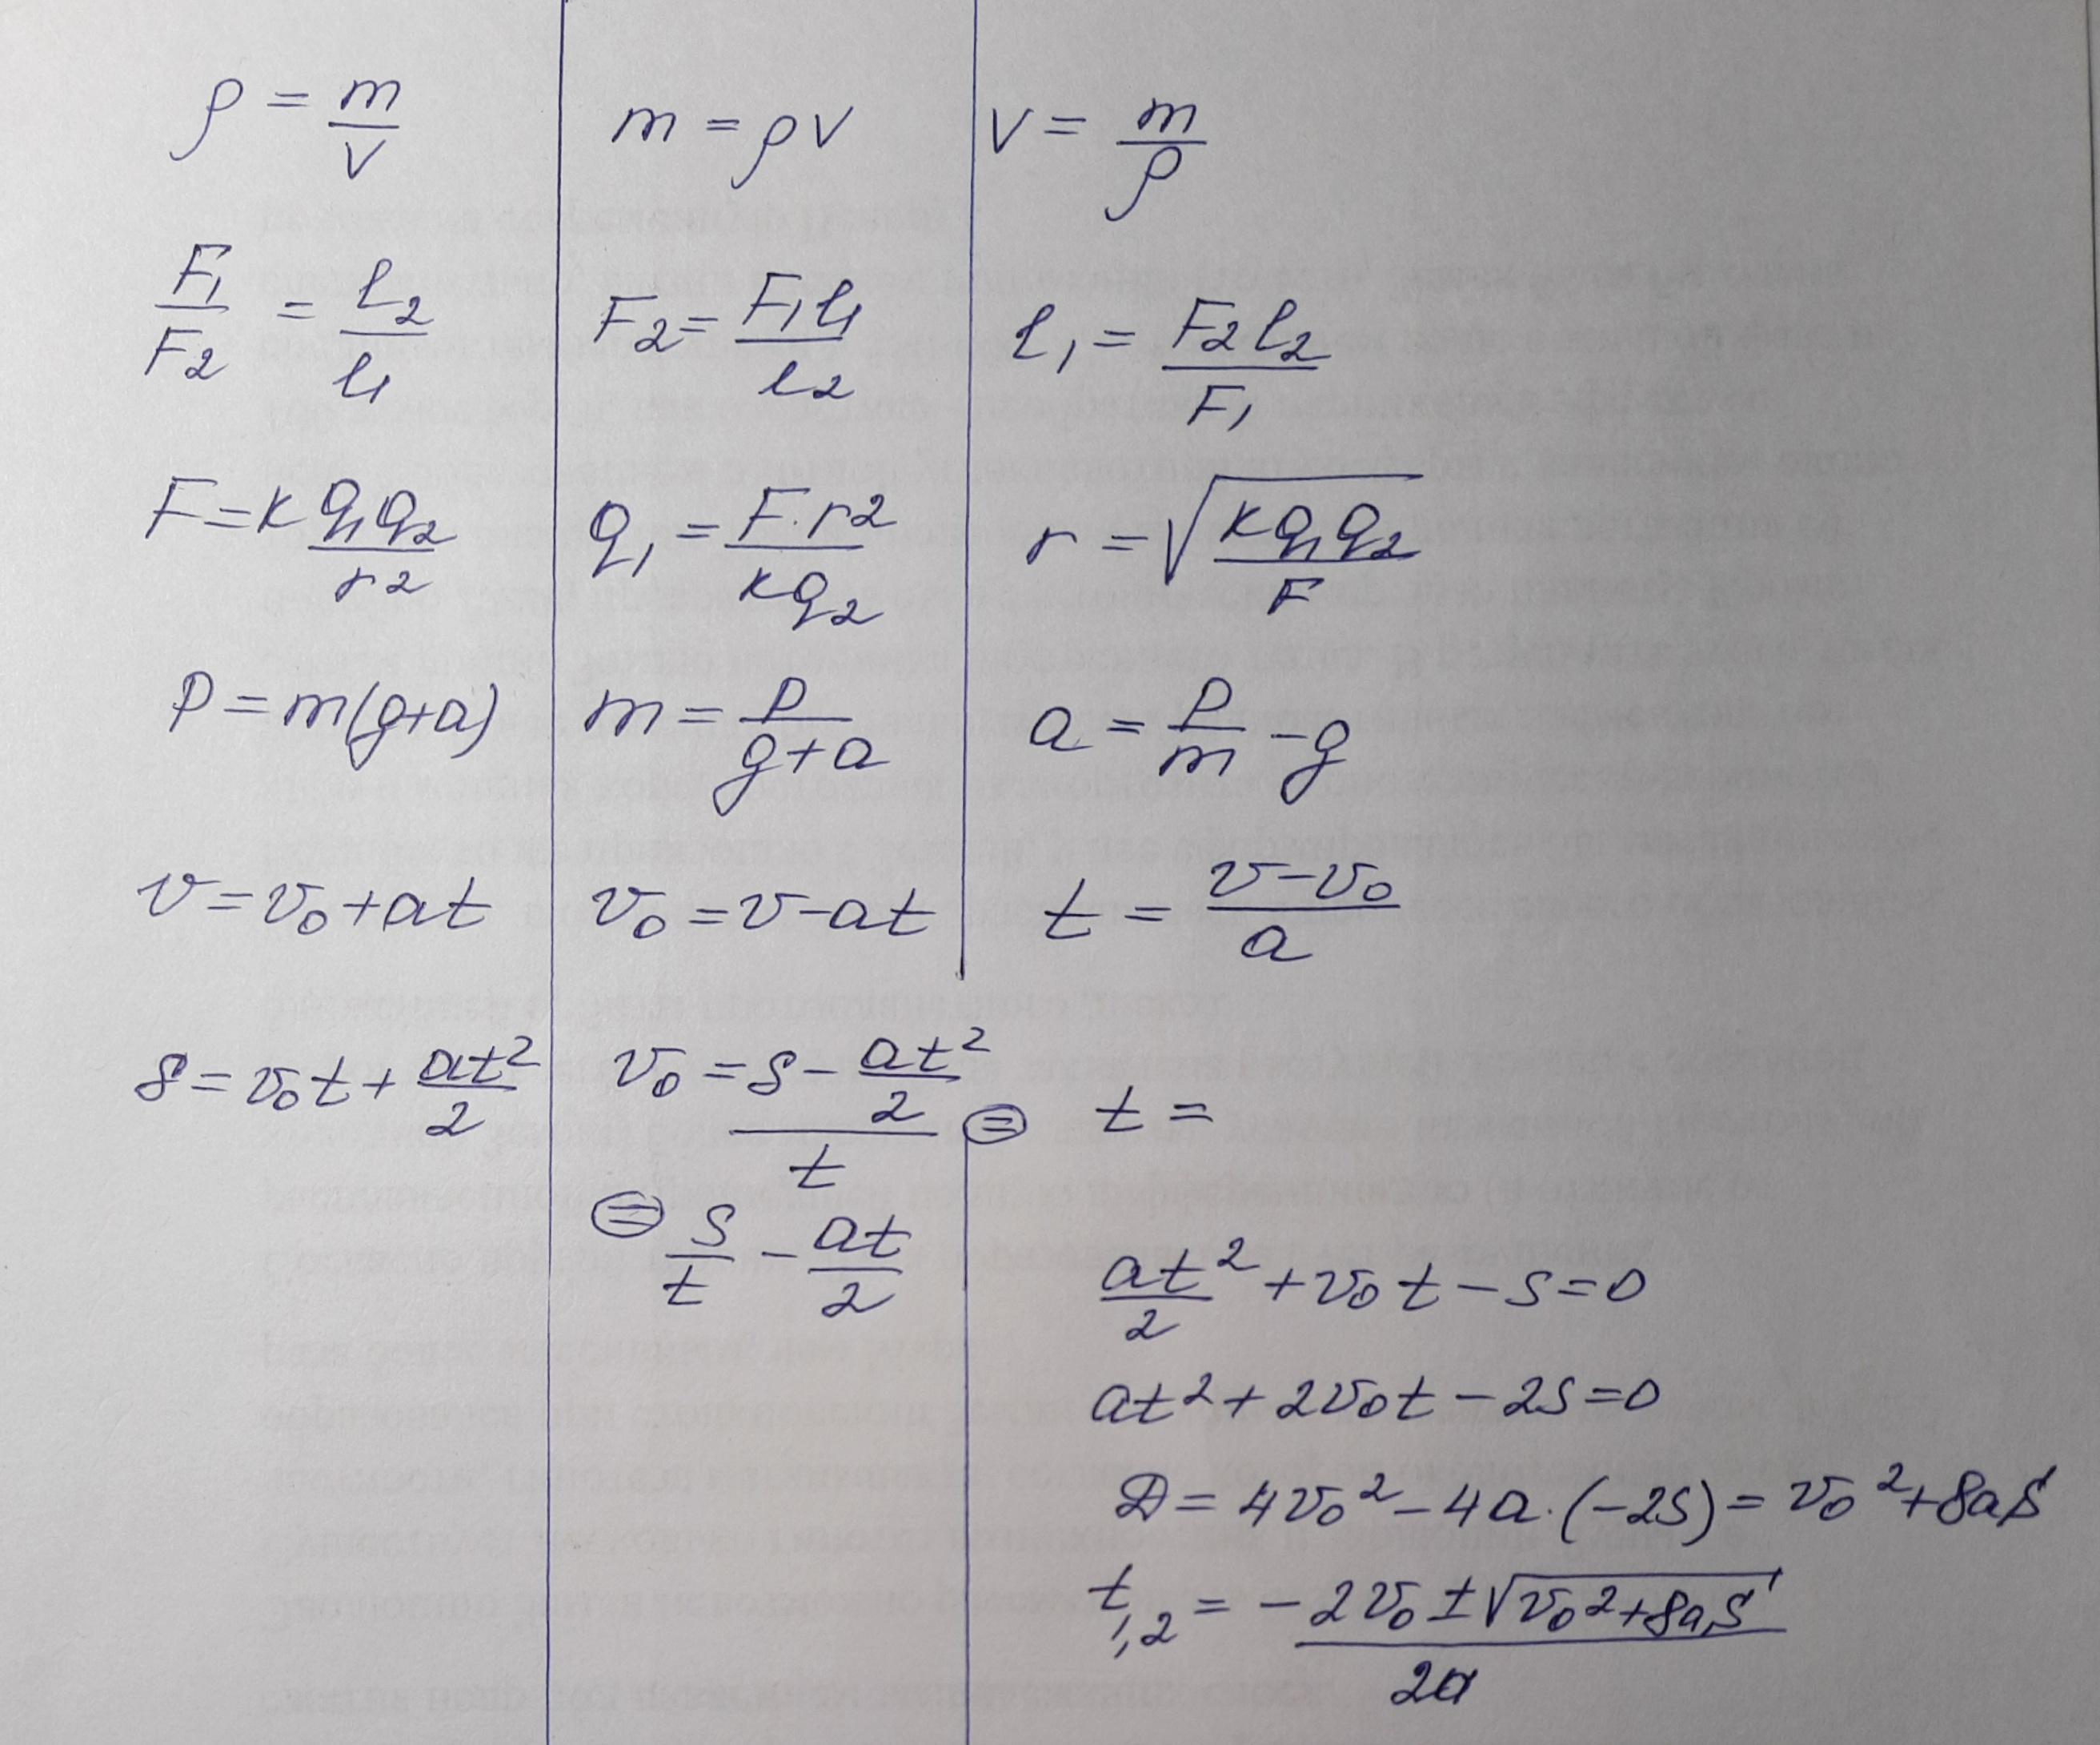 ρ = m/V
m = ρV
V = m/ρ
F₁/F₂ = l₂/l₁
F₂ = F₁l₁/l₂
l₁ = F₂l₂/F₁
F = k q₁q₂/r²
q₁ = F·r²/kq₂
r = √(kq₁q₂/F)
P = m(g+a)
m = P/(g+a)
a = P/m − g
v = v₀ + at
v₀ = v − at
t = (v − v₀)/a
S = v₀t + at²/2
v₀ = (S − at²/2)/t ⊜
⊜ S/t − at/2
t =
at²/2 + v₀t − S = 0
at² + 2v₀t − 2S = 0
D = 4v₀² − 4a·(−2S) = v₀² + 8aS
t₁,₂ = −2v₀ ± √(v₀² + 8aS) / 2a